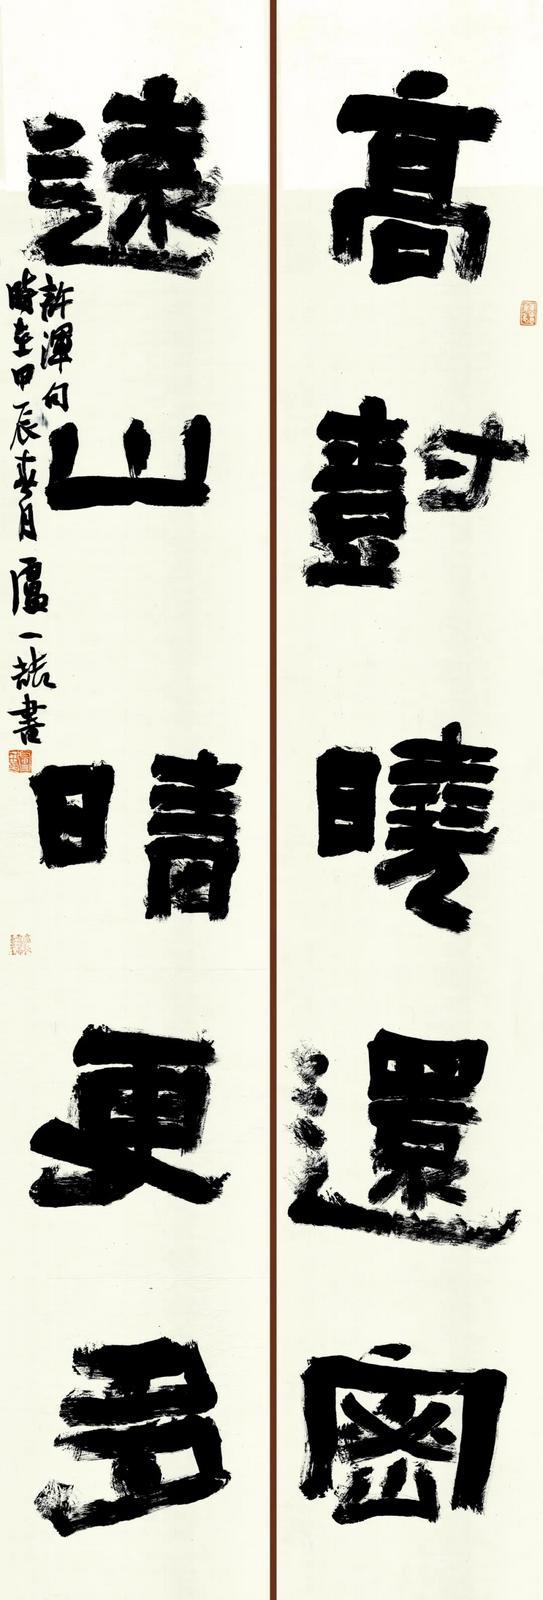 高尌曉還密
遠山晴更多
許渾句
時在甲辰春月盧一書